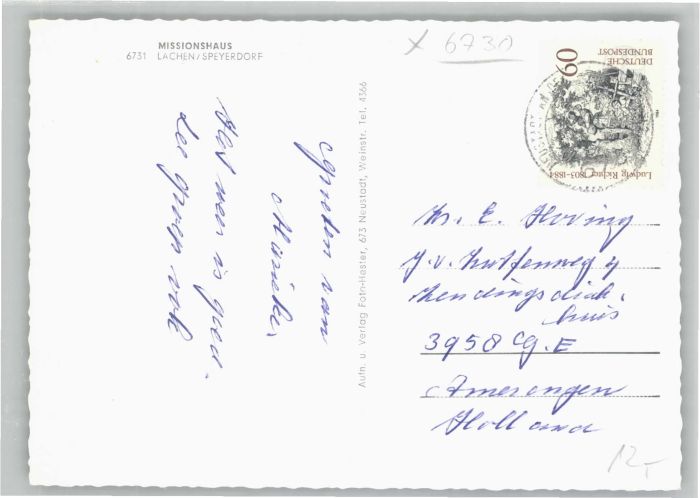 MISSIONSHAUS
6731 LACHEN/SPEYERDORF
Het weer is goed.
de groep ook
Groeten van
Marieke.
Aufn. u. Verlag Foto-Hester, 673 Neustadt, Weinstr. Tel. 4366
x 6730
60
DEUTSCHE
BUNDESPOST
Ludwig Richter 1803-1884
NEUSTADT AN DER
Mr. E. Hoving
J.v. 4
Zendingsdiak.
huis
3958 CG.E
Amerongen
Holland
12,-